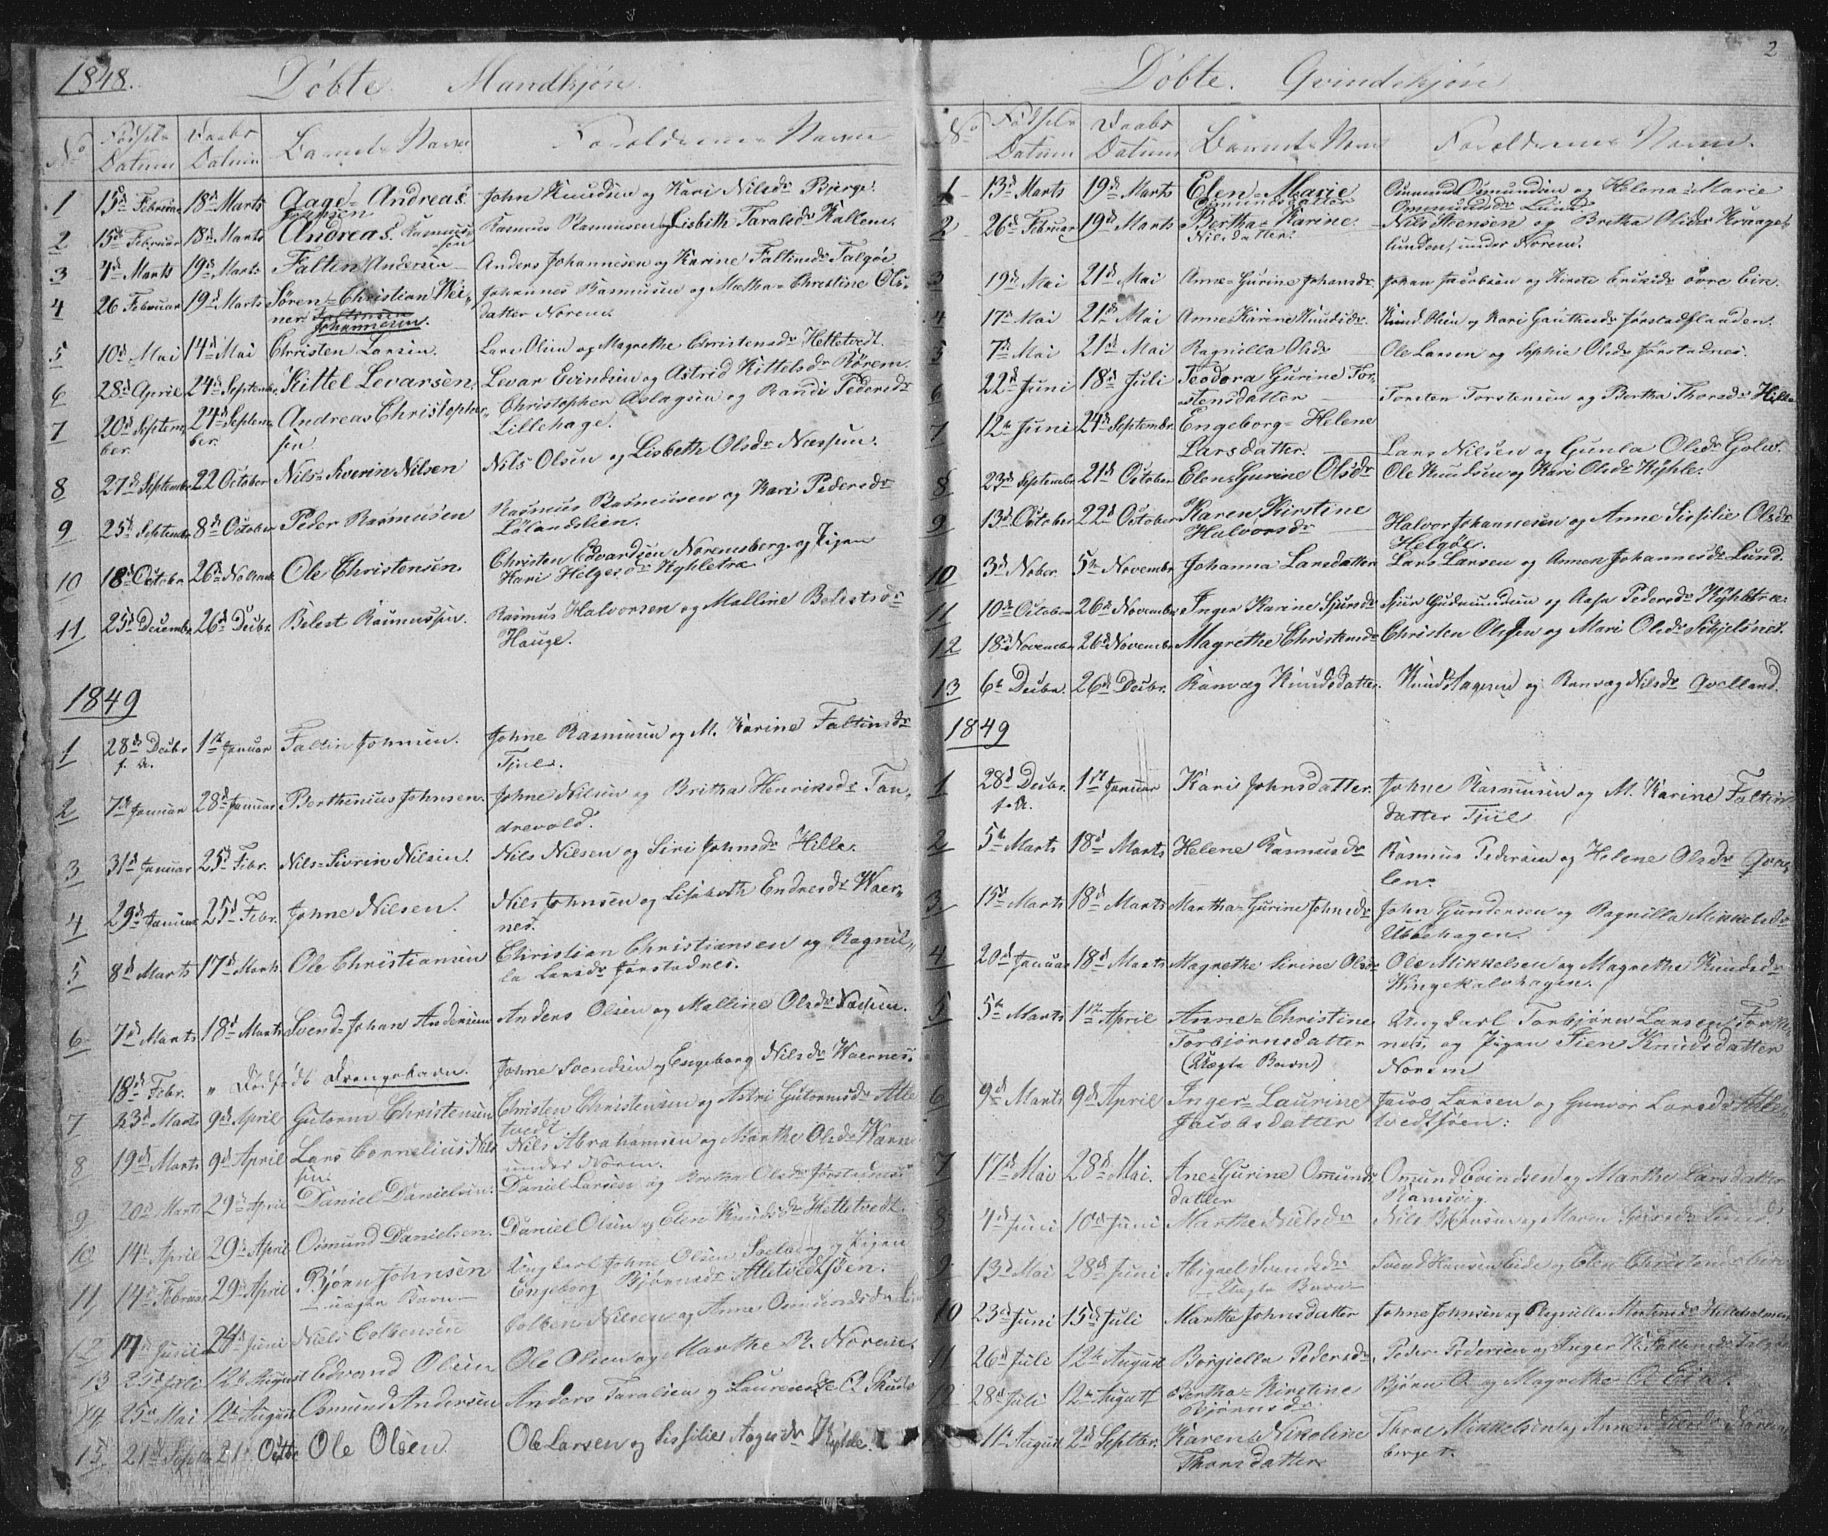 1848.
Döbte Mandkjön.
No Födsels Datum Daabs Datum Barnets Navn Foreldrenes Navne
1 15d Februar 18d Marts Aage-Andreas Johnsen John Knudsen og Kari Nilsdr Bjerge.
2 15d Februar 18d Marts Andreas Rasmussen Rasmus Rasmussen og Lisbeth Taralsdr Kallem.
3 4d Marts 19d Marts Faltin Andersen Anders Johannesen og Karine Faltinsdr Talgöe
4 26 Februar 19d Marts Sören-Christian Weiner Johannesen. Johannes Rasmusen og Metha-Christine Olsdatter Norem.
5 10d Mai 14d Mai Christen Larsen. Lars Olsen og Magrethe Christensdr Hettetvedt.
6 28d April 24d September Kittel Levarsen, Levar Evindsen og Astrid Kittelsdr Rörem.
7 20d September 24d September Andreas Christophersen Christopher Aslagsen og Randi Pedersdr Lillehage.
8 27d Septembr 22 October Nils-Severin Nilsen Nils Olsen og Lisbeth Olsdr Næssun.
9 25d Septembr 8d October Peder Rasmusen Rasmus Rasmusen og Kari Pedersdr Lölandslien.
10 18d Octobr 26d Novbr Ole Christensen Christen Edvardsen Noremsberg og Pigen Kari Helgesdr Kyhletræ
11 25d Decembr 26d Decbr Belest Rasmussen. Rasmus Halvorsen og Malline Belestsdr Hauge.
1849
1 28d Decbr f. A. 1st Januar Faltin Johnsen. Johne Rasmusen og M. Karine Faltinsdr Tjul.
2 7de Januar 28d Januar Berthenius Johnsen. Johne Nilsen og Britha Henriksdr Tandrevold.
3 31d Januar 25d Febr. Nils-Sivrin Nilsen. Nils Nilsen og Siri Johnsdr Hille.
4 29d Januar 25d Febr. Johne Nilsen. Nils Johnsen og Lisabeth Endresdr Waernes.
5 8d Marts 17d Marts Ole Christiansen Christian Christiansen og Ragnilla Larsdr Jörstadnes.
6 7d Marts 18d Marts Svend-Johan Andersen Anders Olsen og Malline Olsdr Næssun.
18d Febr. " Dödfödt Drengebarn. Johne Svendsen og Engeborg Nilsdr Waernes.
7 23d Marts 9d April Gutorm Christensen Christen Christensen og Astri Gutormsdr Altetvedt
8 19d Marts 9d April Lars Cornelius Nilssen. Nils Abrahamsen og Marthe Olsdr under Norem.
9 20d Marts 29d April Daniel Danielsen. Daniel Larsen og Bretha Olsdr Jörstadnes
10 14d April 29d April Osmund Danielsen. Daniel Olsen og Elen Knudsdr Hettetvedt.
11 14d Februar 29d April Björn Johnsen uægte Barn Ungkarl Johne Olsen og Pigen Engeborg Björnsdr
12 Juni 24d Juni Niels Colbensen Colben Nilsen og Anne Osmundsdr
13 25d Juli 12te August Edvand Olsen Ole Olsen og Marthe B. Norem.
14 25d Mai 12te August Osmund Andersen Anders Taralsen og
15 21d Septbr 21d Octbr Ole Olsen Ole Larsen og Sissilie Aagesdr Kyhle.
2
Döbte. Qvindekjön
No Födsels Datum Daabs Datum Barnets Navn Foreldrenes Navne.
1 13d Marts 19d Marts Elen-Marie Osmundsdatter Osmund Osmundsen og Helena-Marie Osmundsdr Lund
2 26d Februar 19d Marts Bertha-Karine Nilsdatter. Nils Stensen og Bretha Olsdr Krangelunden under Norem.
3 19d Mai 21d Mai Anne-Gurine Johansdr Johan Jacobsen og Kirste Eriksdr övre Eik.
4 17d Mai 21d Mai Anne Karine Knudsdr. Knud Olsen og Kari Gauthesdr Jörstadflanden.
5 7d Mai 21d Mai Ragnilla Olsdr Ole Larsen og Sophie Olsdr Jörstadnes.
6 22d Juni 18d Juli Teodora Gurine Torstensdatter Torsten Torstensen og Bertha Thorsdr Hille
7 12te Juni 24d Septembr Engeborg-Helene Larsdatter. Lars Nilsen og Gunla Olsdr
8 23d Septembr 21d October Elen-Gurine Olsdr Ole Knudsen og Kari Olsdr Kyhle.
9 13d October 22d October Karen Kirstine Halvorsdr Halvor Johannesen og Anne Sissilie Olsdr Helgöe.
10 3d Nober 5te Novembr Johanna Larsdatter Lars Larsen og Annen Johannesdr Lund.
11 10d October 26d Novembr Inger Karine Sjursdr Sjur Gudmundsen og Aasa Pedersdr Kyhletræ.
12 18d Novembr 26d Novembr Magrethe Christensdr Christen Olsen og Mari Olsdr Skjelsnes.
13 6te Decbr. 26d Decbr. Ranvæg Knudsdatter. Knud Aagesen og Ranvæg Nilsdr Qvelland.
1849
1 28d Decbr. f. A. 1st Januar Kari Johnsdatter. Johne Rasmusen og M. Karine Faltinsdatter Tjul
2 5te Marts 18d Marts Helene Rasmusdr Rasmus Pedersen og Helene Olsdr Qvalen.
3 15d Marts 18d Marts Martha-Gurine Johnsdr John Gundersen og Ragnilla Mikkelsdr Ubbehagen.
4 20d Januar 18d Marts Magrethe Sirine Olsdr Ole Mikkelsen og Magrethe Knudsdr Wingekalvhagen.
5 5te Marts 1st April Anne-Christine Torbjörnsdatter (Uægte Barn) Ungkarl Torbjörn Larsen og Pigen Sien Knudsdatter Norem
6 9d Marts 9d April Inger-Laurine Jacobsdatter Jacob Larsen og Gunvor Larsdr
7 17d Mai 28d Mai. Ane-Gurine Omundsdatter Omund Evindsen og Marthe Larsdatter Ramsvig.
8 4d Juni 10d Juni Marthe Nielsdr Nils og Maren
9 13d Mai 28d Juni Abigael Svendsdr Uægte Barn Svend Hansen Eide og Elen Christensdr
10 23d Juni 15d Juli Marthe Johnsdatter Johne Johnsen og Ragnilla
11 26d Juli 12te August Borgiella Pedersdr. Peder Pedersen og Inger
12 28d Juli 12te August Bertha-Kirstine Björnsdr Björn O. og Magrethe O. Eike
11te August 2d Septbr. Karen Nikoline Thorsdatter Thore Mikkelsen og Anne